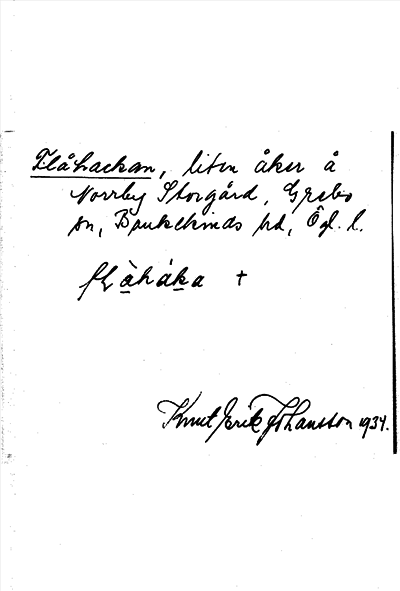 Flåhackan, liten åker å
Norrby Storgård, Grebo
sn, Bankekinds hd, Ögl. l.
flàháka +
Knut Erik Johansson 1934.